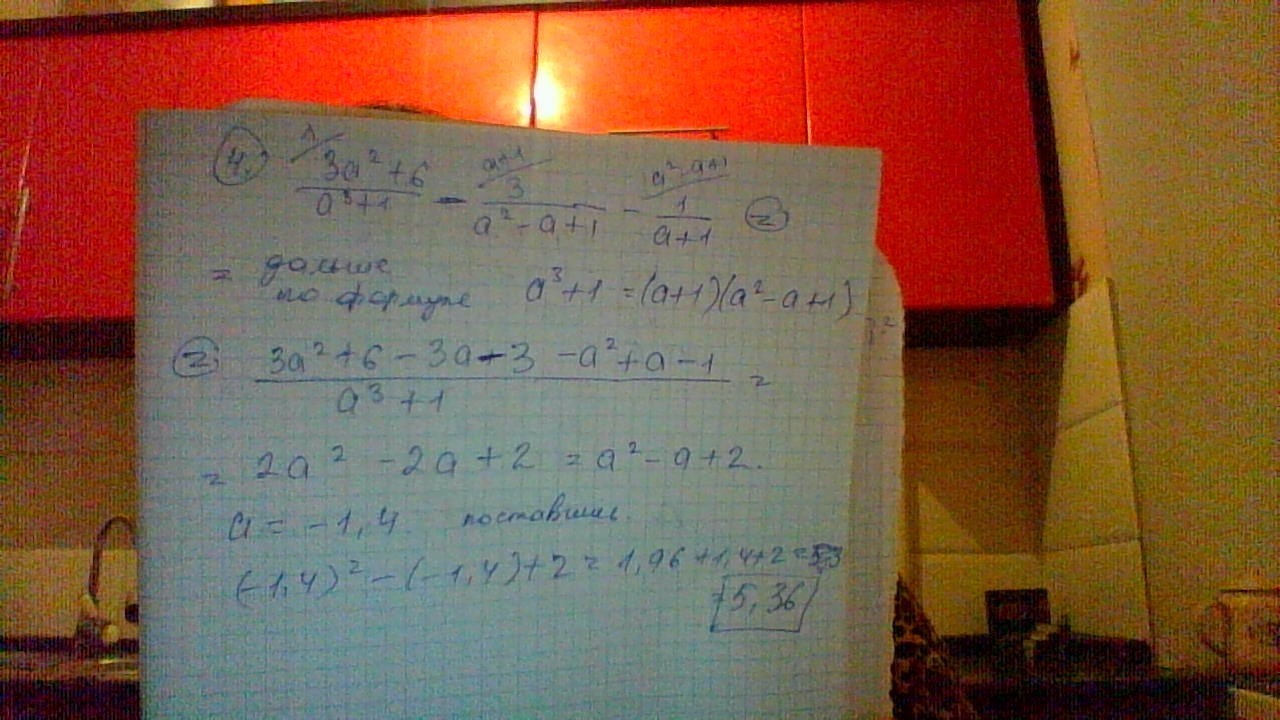 4. 1/ 3a²+6 / a³+1 - a+1/ 3 / a²-a+1 - a²-a+1/ 1 / a+1 =
= дальше
по формуле a³+1 = (a+1)(a²-a+1)
= 3a²+6-3a-3-a²+a-1 / a³+1 =
= 2a² -2a+2 = a²-a+2.
a = -1,4. поставишь.
(-1,4)² - (-1,4)+2 = 1,96+1,4+2 =
= 5,36